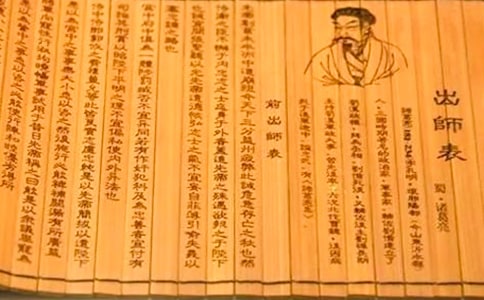 出師表
蜀·諸葛亮
人，三國時期著名的政治家、軍事家。輔佐劉備建立了
蜀漢政權，拜為丞相，劉備死後，又輔佐後主劉禪長期
前出師表
先帝創業未半而中道崩殂今天下三分益州疲弊此誠危急存亡之秋也然
侍衛之臣不懈于內忠志之士忘身于外者蓋追先帝之殊遇欲報之于陛下
也誠宜開張聖聽以光先帝遺德恢弘志士之氣不宜妄自菲薄引喻失義以
塞忠諫之路也
宮中府中俱為一體陟罰臧否不宜異同若有作奸犯科及為忠善者宜付有
司論其刑賞以昭陛下平明之理不宜偏私使內外異法也
侍中侍郎郭攸之費禕董允等此皆良實志慮忠純是以先帝簡拔以遺陛下
愚以為宮中之事事無大小悉以咨之然後施行必能裨補闕漏有所廣益
將軍向寵性行淑均曉暢軍事試用于昔日先帝稱之曰能是以眾議舉寵為
以為營中之事悉以咨之必能使行陣和睦優劣得所